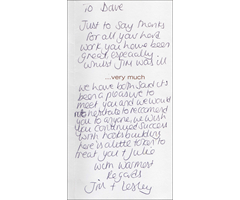 To Dave
Just to say thanks
for all you hard
work, you have been
great, especially
whilst Jim was ill
...very much
we have both said it's
been a pleasure to
meet you and we would
not hesitate to recommend
you to anyone, we wish
you continued success
with hooks building
here is a little token to
treat you + Julie
with warmest
Regards
Jim + Lesley